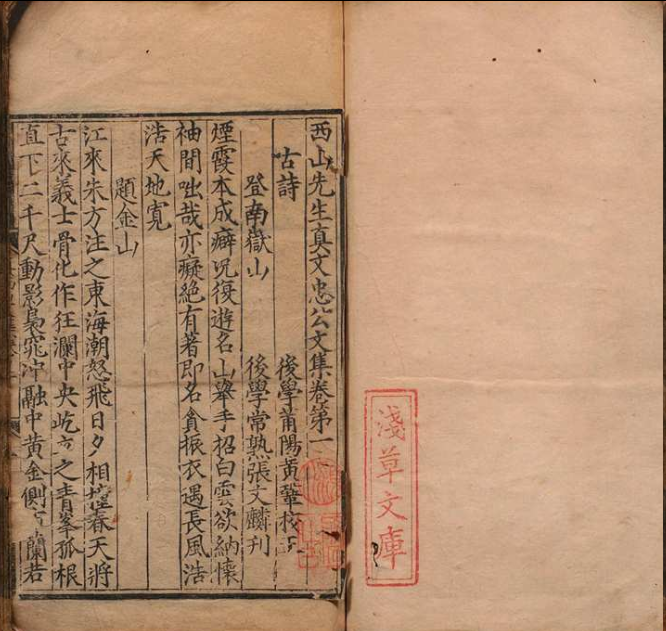 淺草文庫
西山先生真文忠公文集卷第一
古詩 後學莆陽黃鞏校正
登南嶽山 後學常熟張文麟刊
煙霞本成癖况復遊名山舉手招白雲欲納懷
袖間咄哉亦癡絕有著即名貪振衣遇長風浩
浩天地寬
題金山
江來朱方注之東海潮怒飛日夕相撞舂天將
古來義士骨化作狂瀾中央屹立之青峯孤根
直下二千尺動影裊窕冲融中黃金側布蘭若